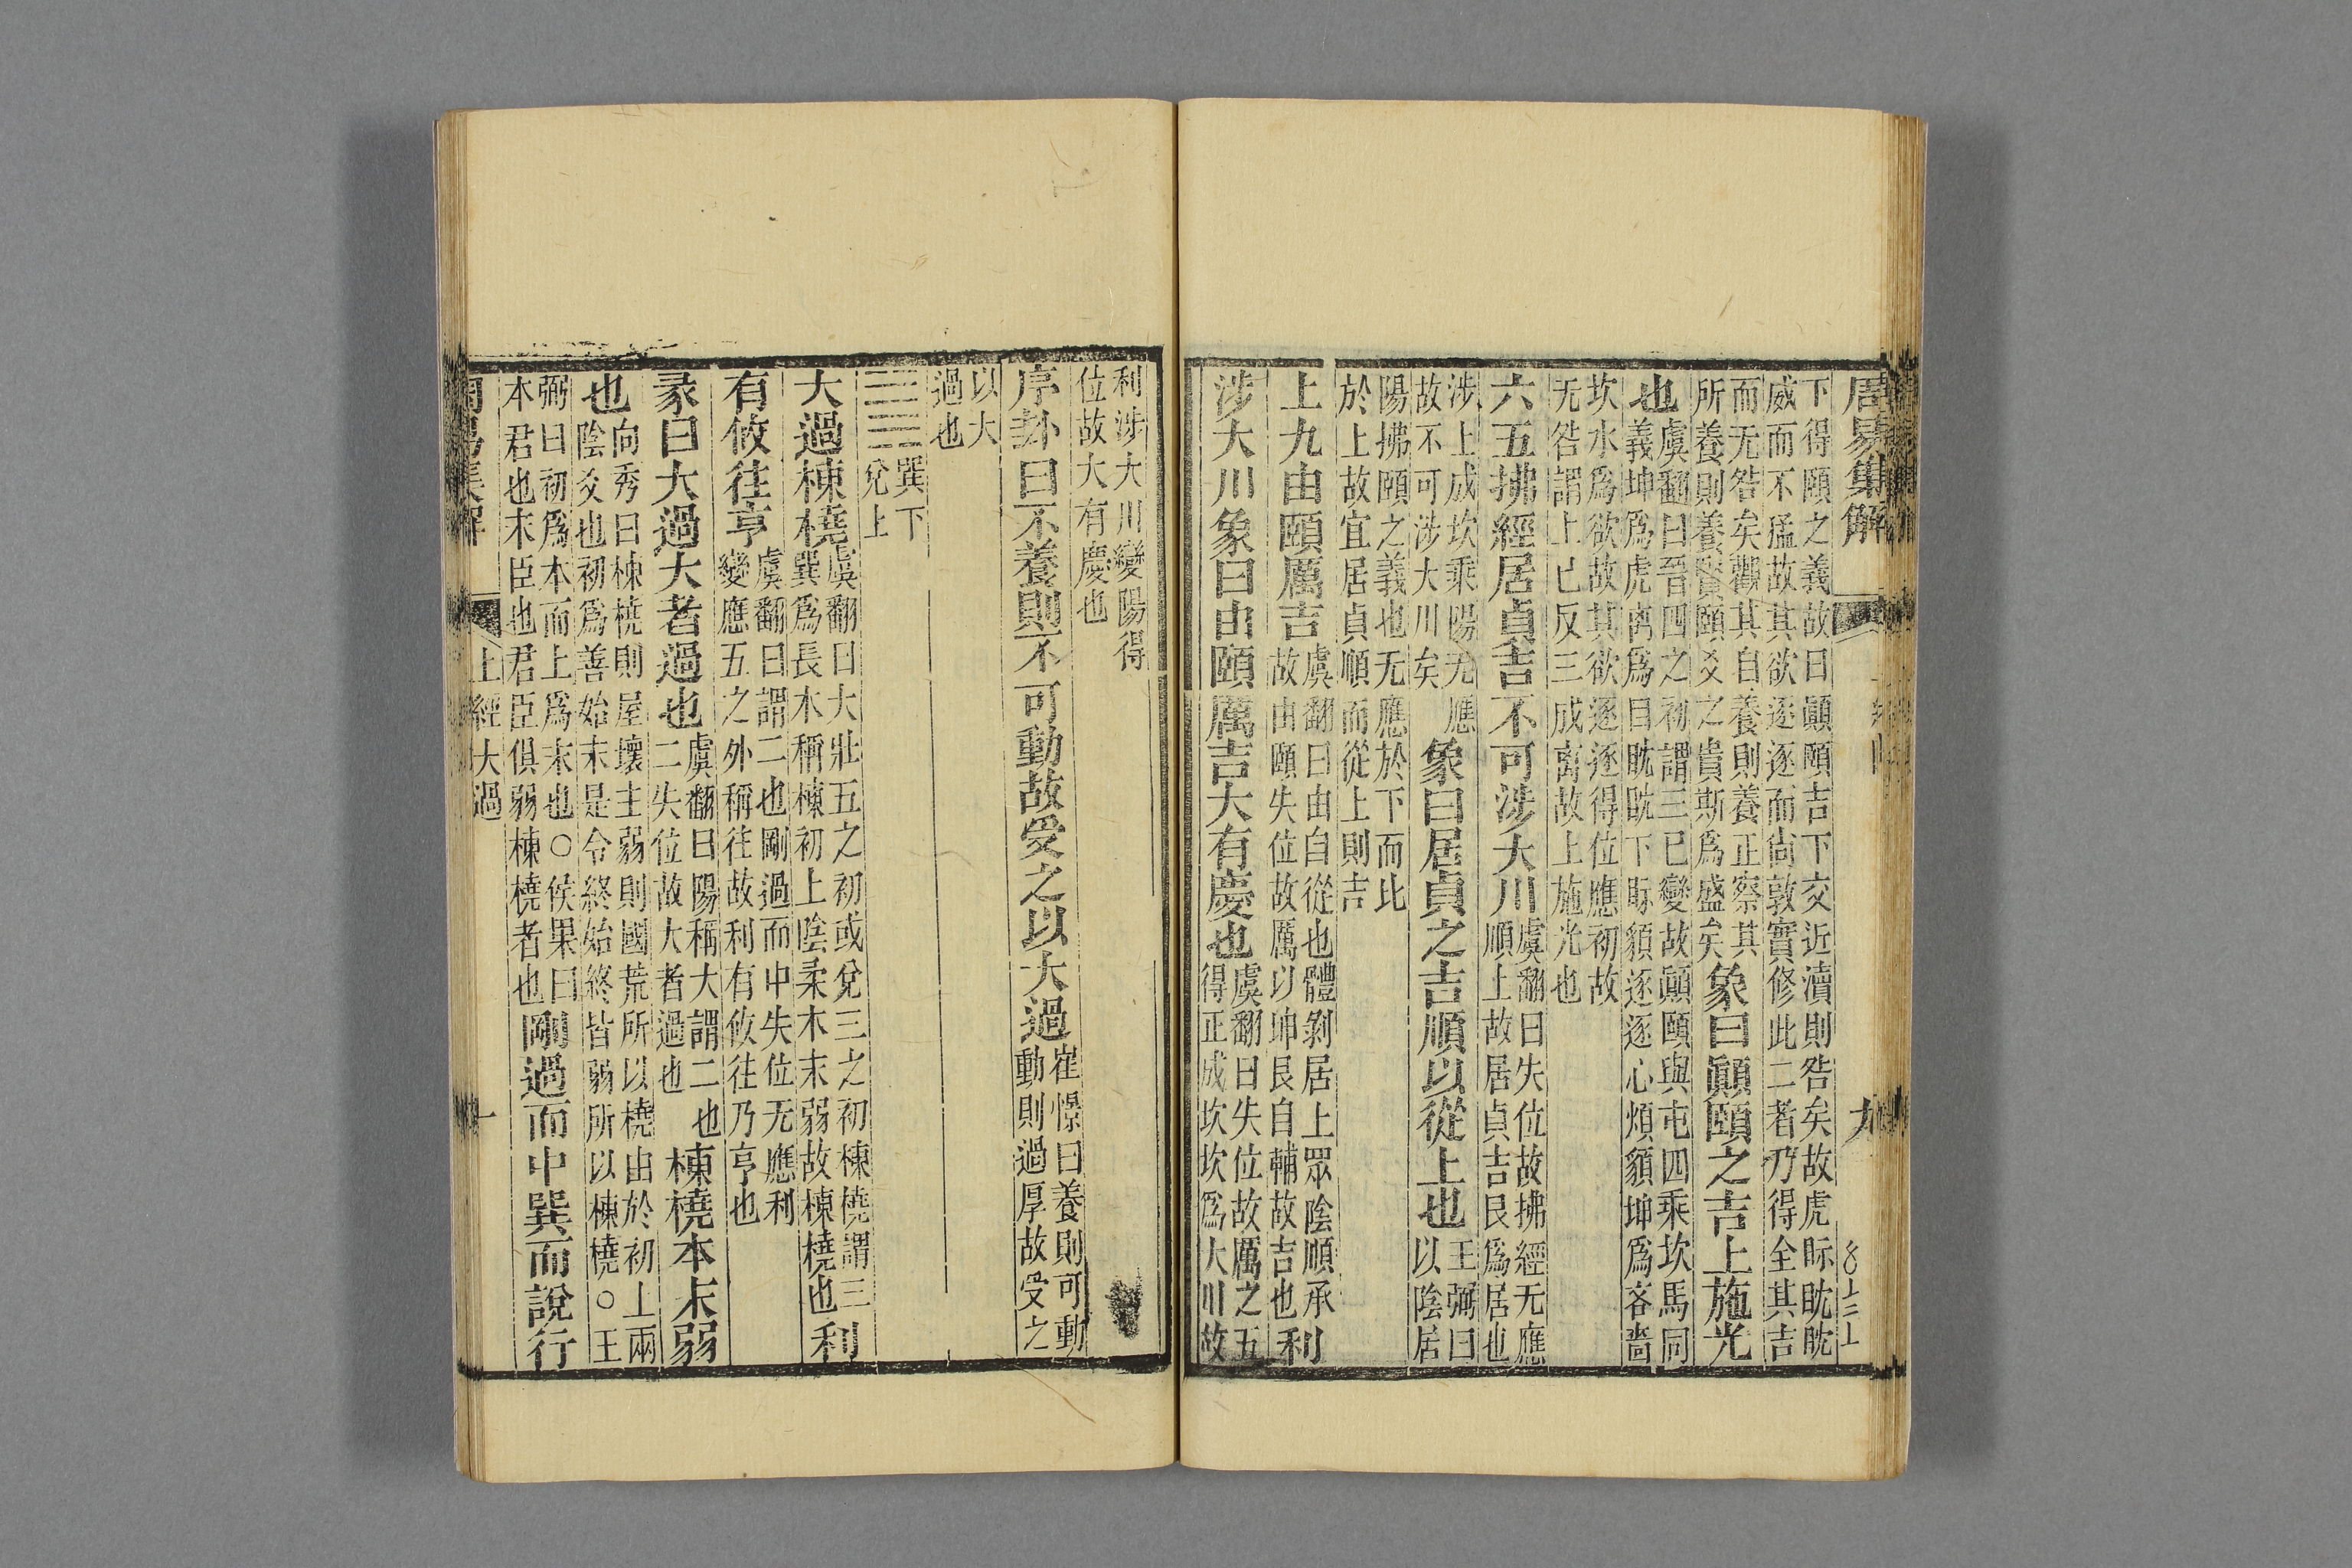 周易集解 九
下得頤之義故曰顚頤吉下交近瀆則咎矣故虎眎眈眈
威而不猛故其欲逐逐而尚敦實修此二者乃得全其吉
而无咎矣觀其自養則養正察其
所養則養賢頤爻之貴斯爲盛矣
象曰顚頤之吉上施光
也
虞翻曰晉四之初謂三已變故顚頤與屯四乘坎馬同
義坤爲虎离爲目眈眈下眎貌逐逐心煩貌坤爲吝嗇
坎水爲欲故其欲逐逐得位應初故
无咎謂上已反三成离故上施光也
六五拂經居貞吉不可涉大川
虞翻曰失位故拂經无應
順上故居貞吉艮爲居也
涉上成坎乘陽无應
故不可涉大川矣
象曰居貞之吉順以從上也
王弼曰
以陰居
陽拂頤之義也无應於下而比
於上故宜居貞順而從上則吉
上九由頤厲吉
虞翻曰由自從也體剝居上眾陰順承
故由頤失位故厲以坤艮自輔故吉也
利
涉大川象曰由頤厲吉大有慶也
虞翻曰失位故厲之五
得正成坎坎爲大川故
利涉大川變陽得
位故大有慶也
序卦曰不養則不可動故受之以大過
崔憬曰養則可動
動則過厚故受之
以大
過也
䷛
巽下
兌上
大過棟橈
虞翻曰大壯五之初或兌三之初棟橈謂三
巽爲長木稱棟初上陰柔本末弱故棟橈也
利
有攸往亨
虞翻曰謂二也剛過而中失位无應利
變應五之外稱往故利有攸往乃亨也
彖曰大過大者過也
虞翻曰陽稱大謂二也
二失位故大者過也
棟橈本末弱
也
向秀曰棟橈則屋壞主弱則國荒所以橈由於初上兩
陰爻也初爲善始末是令終始終皆弱所以棟橈○王
弼曰初爲本而上爲末也○侯果曰
本君也末臣也君臣俱弱棟橈者也
剛過而中巽而說行
周易集解 上經 大過 十